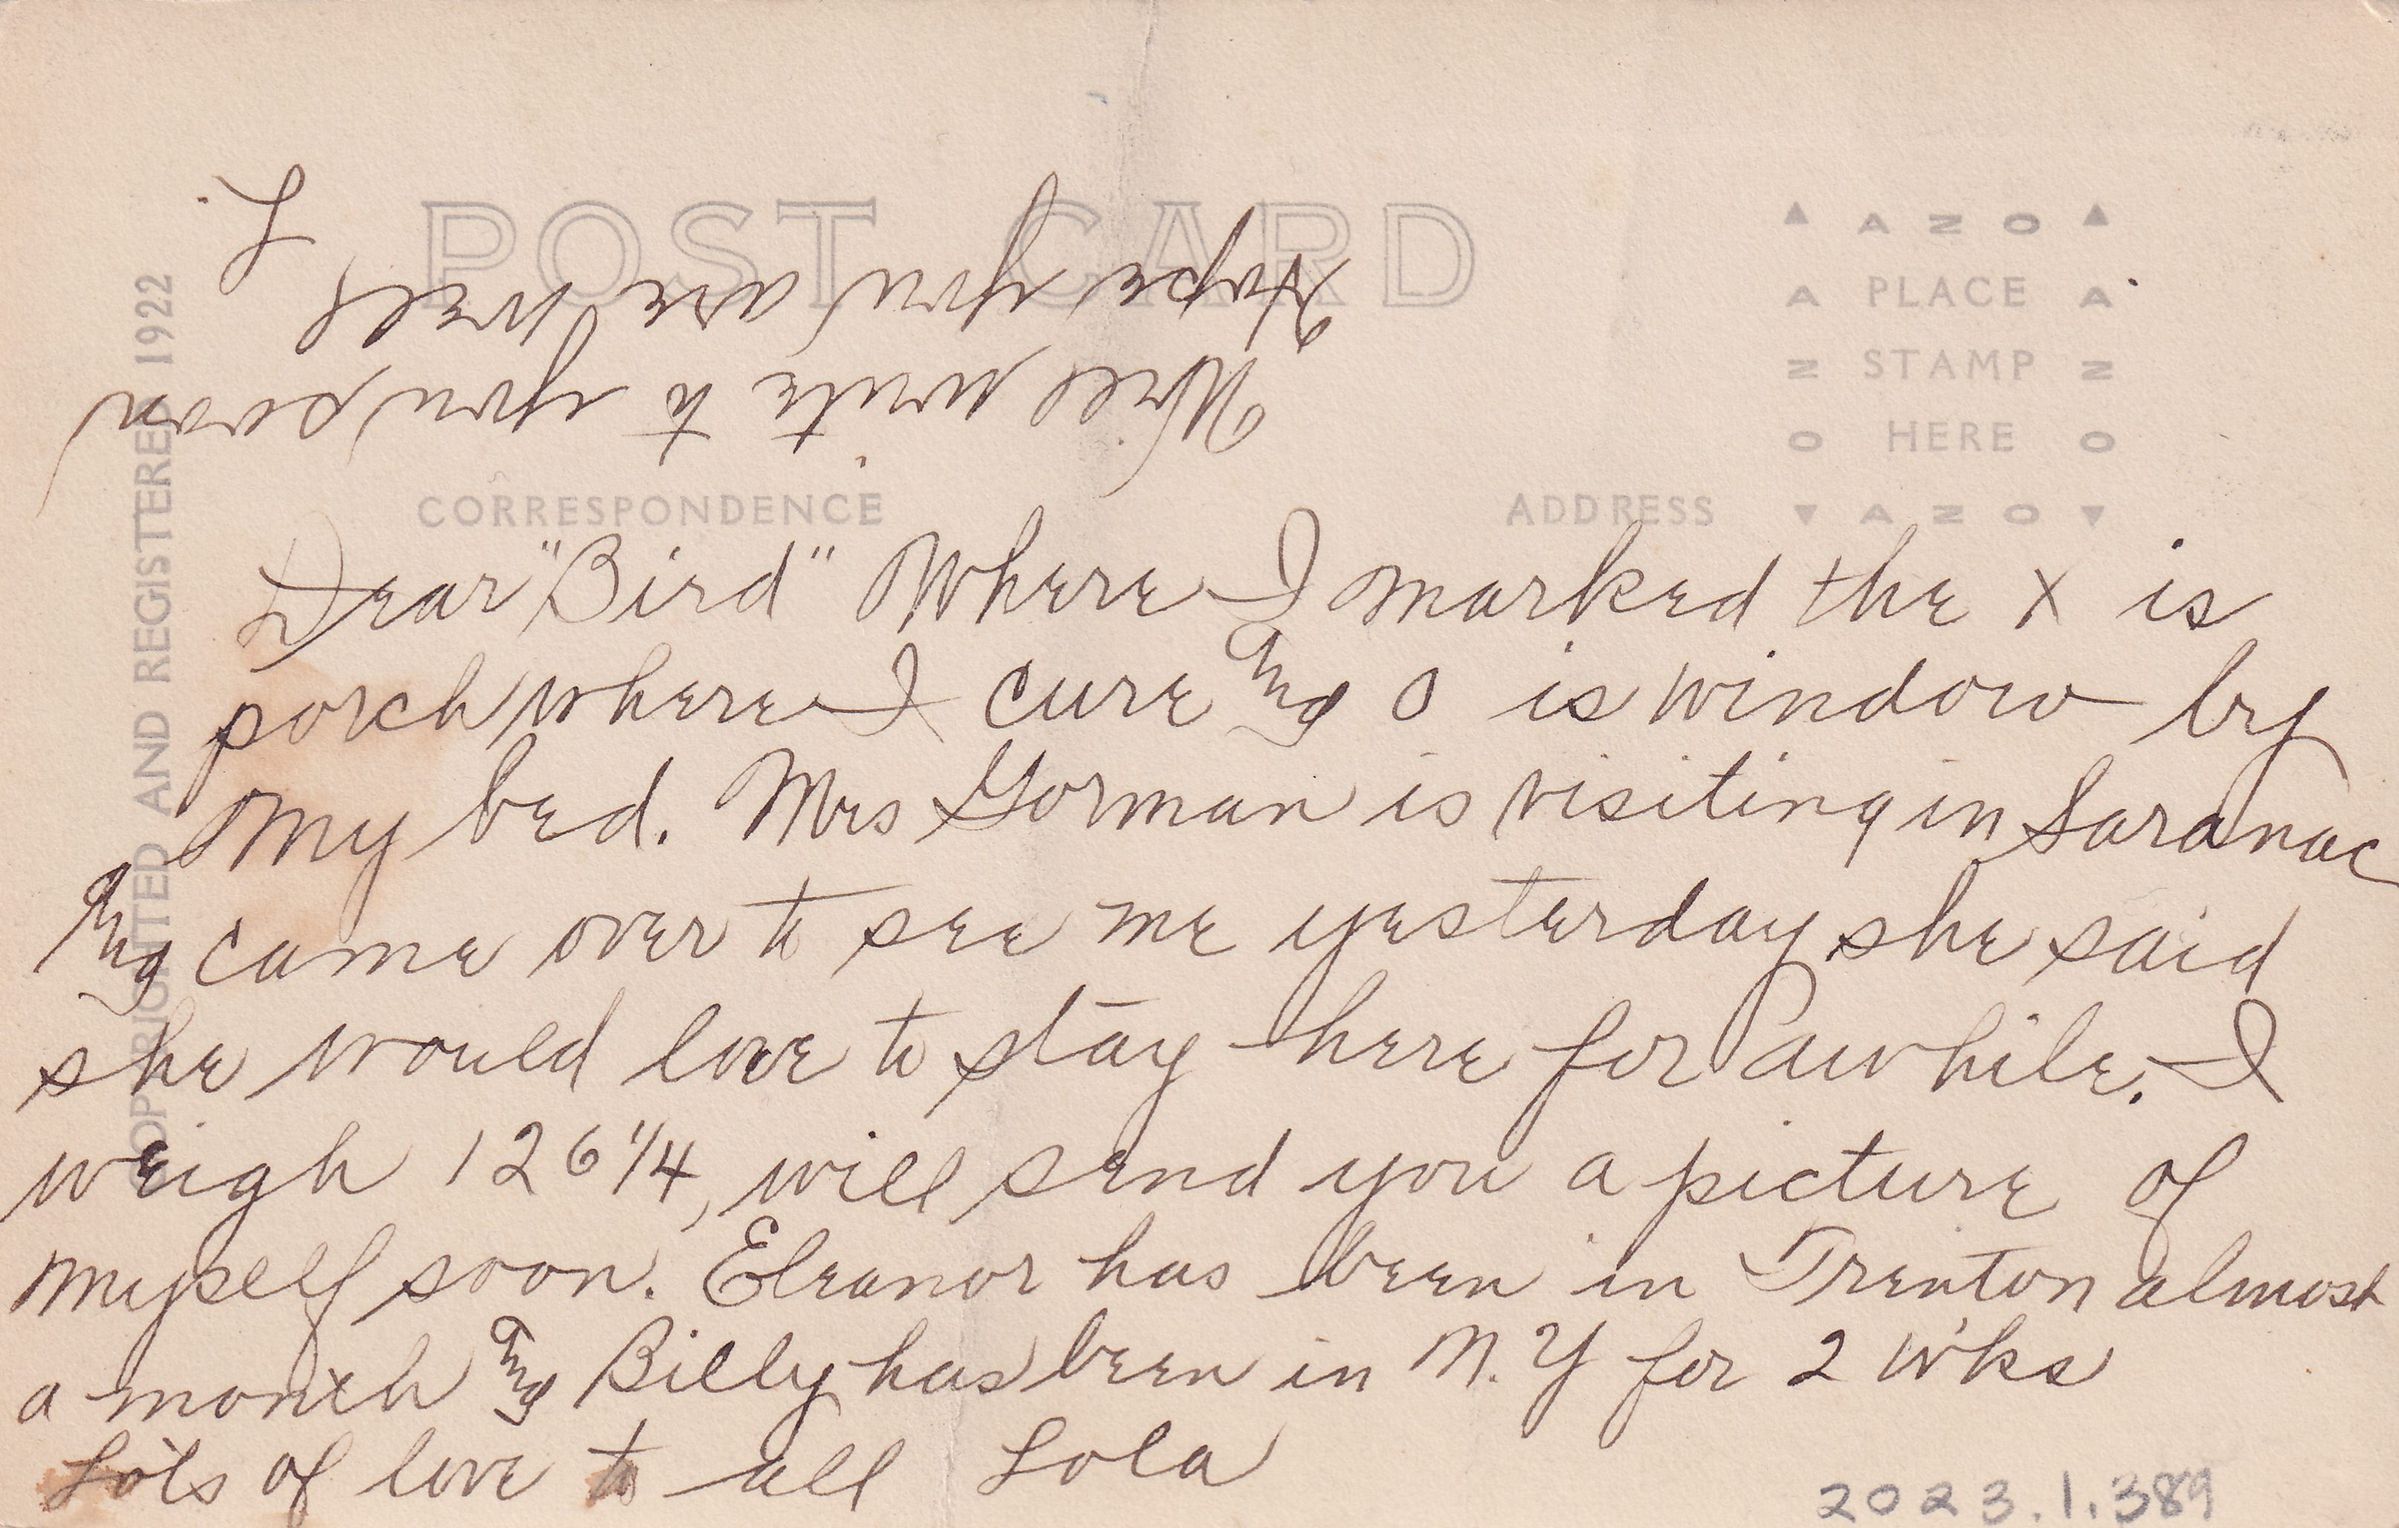 POST CARD
CORRESPONDENCE
ADDRESS
▲ A Z O ▲
A PLACE A
Z STAMP Z
O HERE O
▼ A Z O ▼
COPYRIGHTED AND REGISTERED 1922
Dear "Bird" Where I marked the x is
porch where I cure & O is window by
my bed. Mrs Gorman is visiting in Saranac
& came over to see me yesterday she said
she would love to stay here for awhile. I
weigh 126 1/4, will send you a picture of
myself soon. Eleanor has been in Trenton almost
a month & Billy has been in N.Y for 2 w'ks
Lots of love to all Lola
Will write to you soon
Hope you are well
L.
2023.1.389